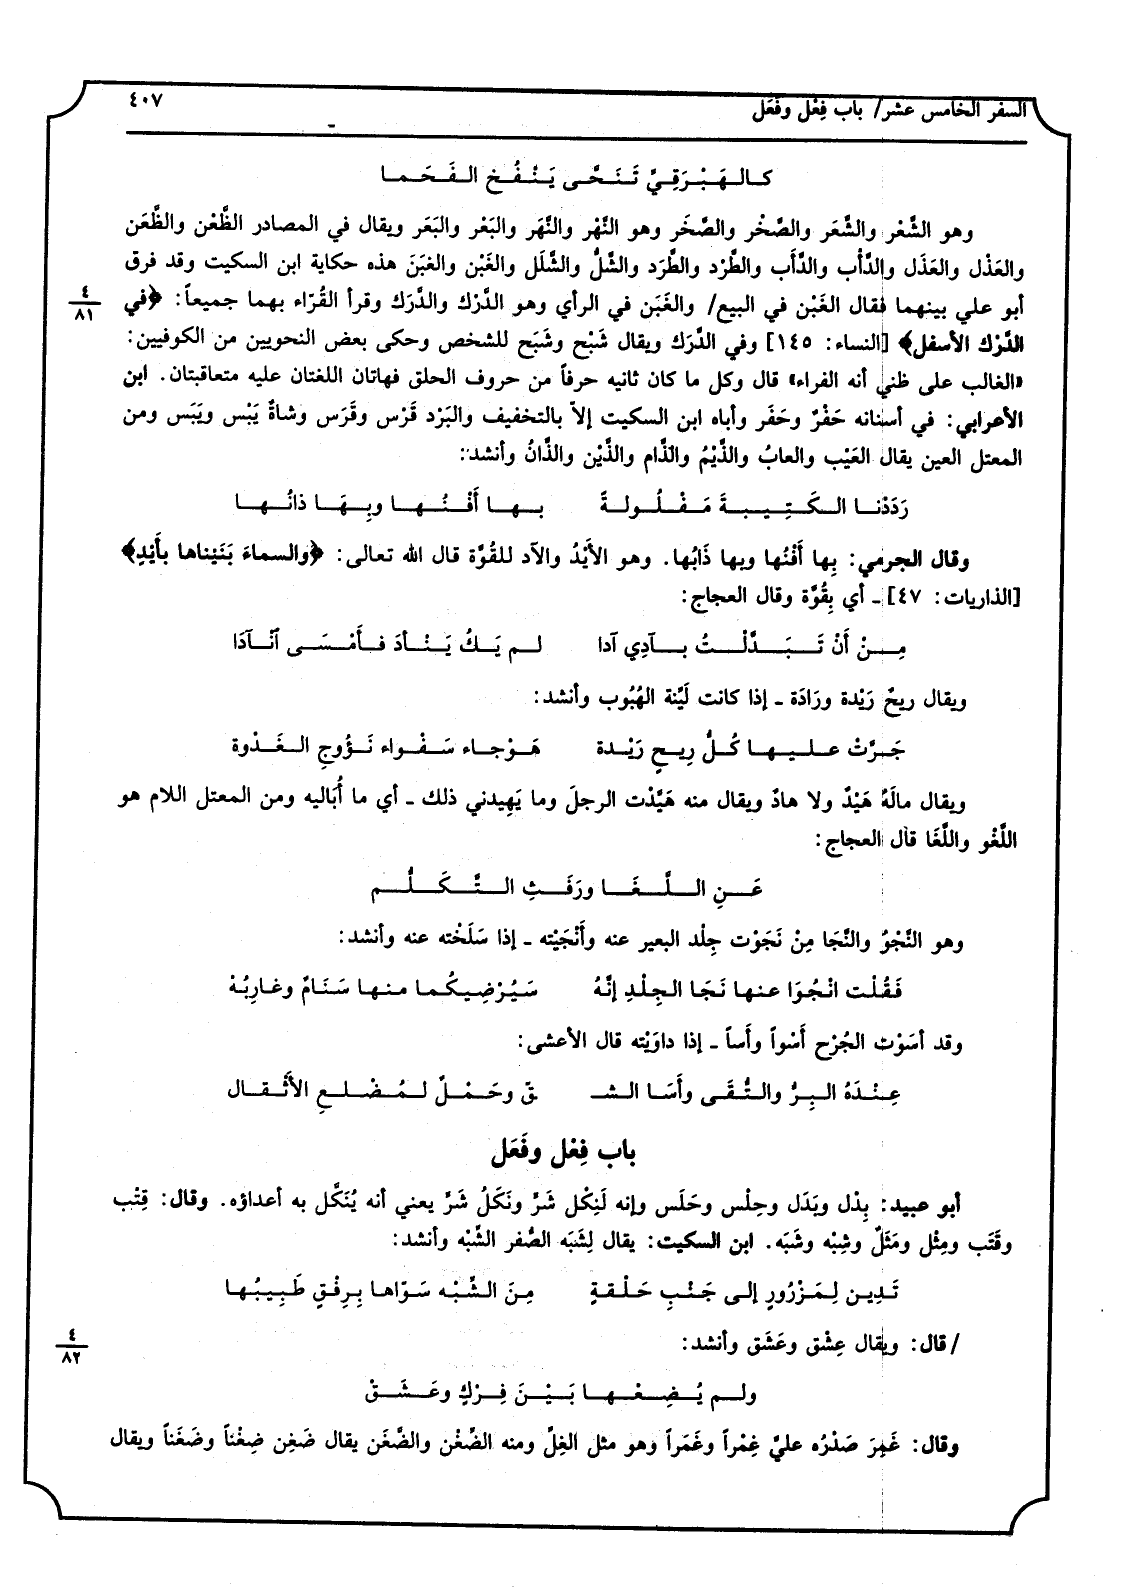 السفر الخامس عشر/ باب فِعْل وفَعَل
٤٠٧
كـالـهِبْـرَقِـيِّ تَـنَـحَّى يَـنْـفُـخ الـفَـحَـما
وهو الشَّعْر والشَّعَر والصَّخْر والصَّخَر وهو النَّهْر والنَّهَر والبَعْر والبَعَر ويقال في المصادر الظَّعْن والظَّعَن
والعَذْل والعَذَل والدَّأْب والدَّأَب والطَّرْد والطَّرَد والشَّلُّ والشَّلَل والغَبْن والغبَنَ هذه حكاية ابن السكيت وقد فرق
أبو علي بينهما فقال الغَبْن في البيع/ والغَبَن في الرأي وهو الدَّرْك والدَّرَك وقرأ القُرّاء بهما جميعاً: ﴿في
٤
٨١
الدَّرْك الأسفل﴾ [النساء: ١٤٥] وفي الدَّرَك ويقال شَبْح وشَبَح للشخص وحكى بعض النحويين من الكوفيين:
«الغالب على ظني أنه الفراء» قال وكل ما كان ثانيه حرفاً من حروف الحلق فهاتان اللغتان عليه متعاقبتان. ابن
الأعرابي: في أسنانه حَفْرٌ وحَفَر وأباه ابن السكيت إلاّ بالتخفيف والبَرْد قَرْس وقَرَس وشاةٌ يَبْس ويَبَس ومن
المعتل العين يقال العَيْب والعابُ والذَّيْمُ والذَّام والذَّيْن والذَّانُ وأنشد:
رَدَدْنـا الـكَـتِـيـبـةَ مَـفْـلُـولـةً بـهـا أَفْـنُـهـا وبِـهَـا ذانُـهـا
وقال الجرمي: بِها أَفْنُها وبها ذَابُها. وهو الأَيْدُ والآد للقُوَّة قال الله تعالى: ﴿والسماءَ بَنَيْناها بأَيْدٍ﴾
[الذاريات: ٤٧] ـ أي بِقُوَّة وقال العجاج:
مِـنْ أَنْ تَـبَـدَّلْـتُ بـآدِي آدا لـم يَـكُ يَـنْـآدَ فـأَمْـسَـى آنْـآدَا
ويقال ريحٌ رَيْدة ورَادَة ـ إذا كانت لَيِّنة الهُبُوب وأنشد:
جَـرَّتْ عـلـيـهـا كُـلُّ رِيـحٍ رَيْـدة هَـوْجـاء سَـفْـواء نَـؤُوجِ الـغَـدْوة
ويقال مالَهُ هَيْدٌ ولا هادٌ ويقال منه هَيَّدْت الرجلَ وما يَهِيدني ذلك ـ أي ما أُبَاليه ومن المعتل اللام هو
اللَّغْو واللَّغَا قال العجاج:
عَـنِ الـلَّـغَـا ورَفَـثِ الـتَّـكَـلُّـم
وهو النَّجْوُ والنَّجَا مِنْ نَجَوْت جِلْد البعير عنه وأَنْجَيْته ـ إذا سَلَخْته عنه وأنشد:
فَـقُـلْـت انْـجُـوَا عـنـها نَـجَا الـجِـلْـدِ إنَّـهُ سَـيُـرْضِـيـكُـمـا مـنـهـا سَـنَـامٌ وغـارِبُـهْ
وقد أسَوْت الجُرْح أَسْواً وأَساً ـ إذا داوَيْته قال الأعشى:
عِـنْـدَهُ الـبِـرُّ والـتُّـقَـى وأَسَـا الـشـ ـقّ وحَـمْـلٌ لـمُـضْـلـعِ الأَثْـقـال
باب فِعْل وفَعَل
أبو عبيد: بِدْل وبَدَل وحِلْس وحَلَس وإنه لَنِكْل شَرّ ونَكَلُ شَرّ يعني أنه يُنَكَّل به أعداؤه. وقال: قِتْب
وقَتَب ومِثْل ومَثَلٌ وشِبْه وشَبَه. ابن السكيت: يقال لِشَبَه الصُّفر الشِّبْه وأنشد:
تَـدِيـن لِـمَـزْرُورٍ إلى جَـنْـبِ حَـلْـقـةٍ مِـنَ الـشِّـبْـه سَـوّاهـا بِـرِفْـقٍ طَـبِـيـبُـهـا
/قال: ويقال عِشْق وعَشَق وأنشد:
٤
٨٢
ولـم يُـضِـعْـهـا بَـيْـنَ فِـرْكٍ وعَـشَـقْ
وقال: غَمِرَ صَدْرُه عليَّ غِمْراً وغَمَراً وهو مثل الغِلّ ومنه الضِّغْن والضَّغَن يقال ضَغِن ضِغْناً وضَغَناً ويقال